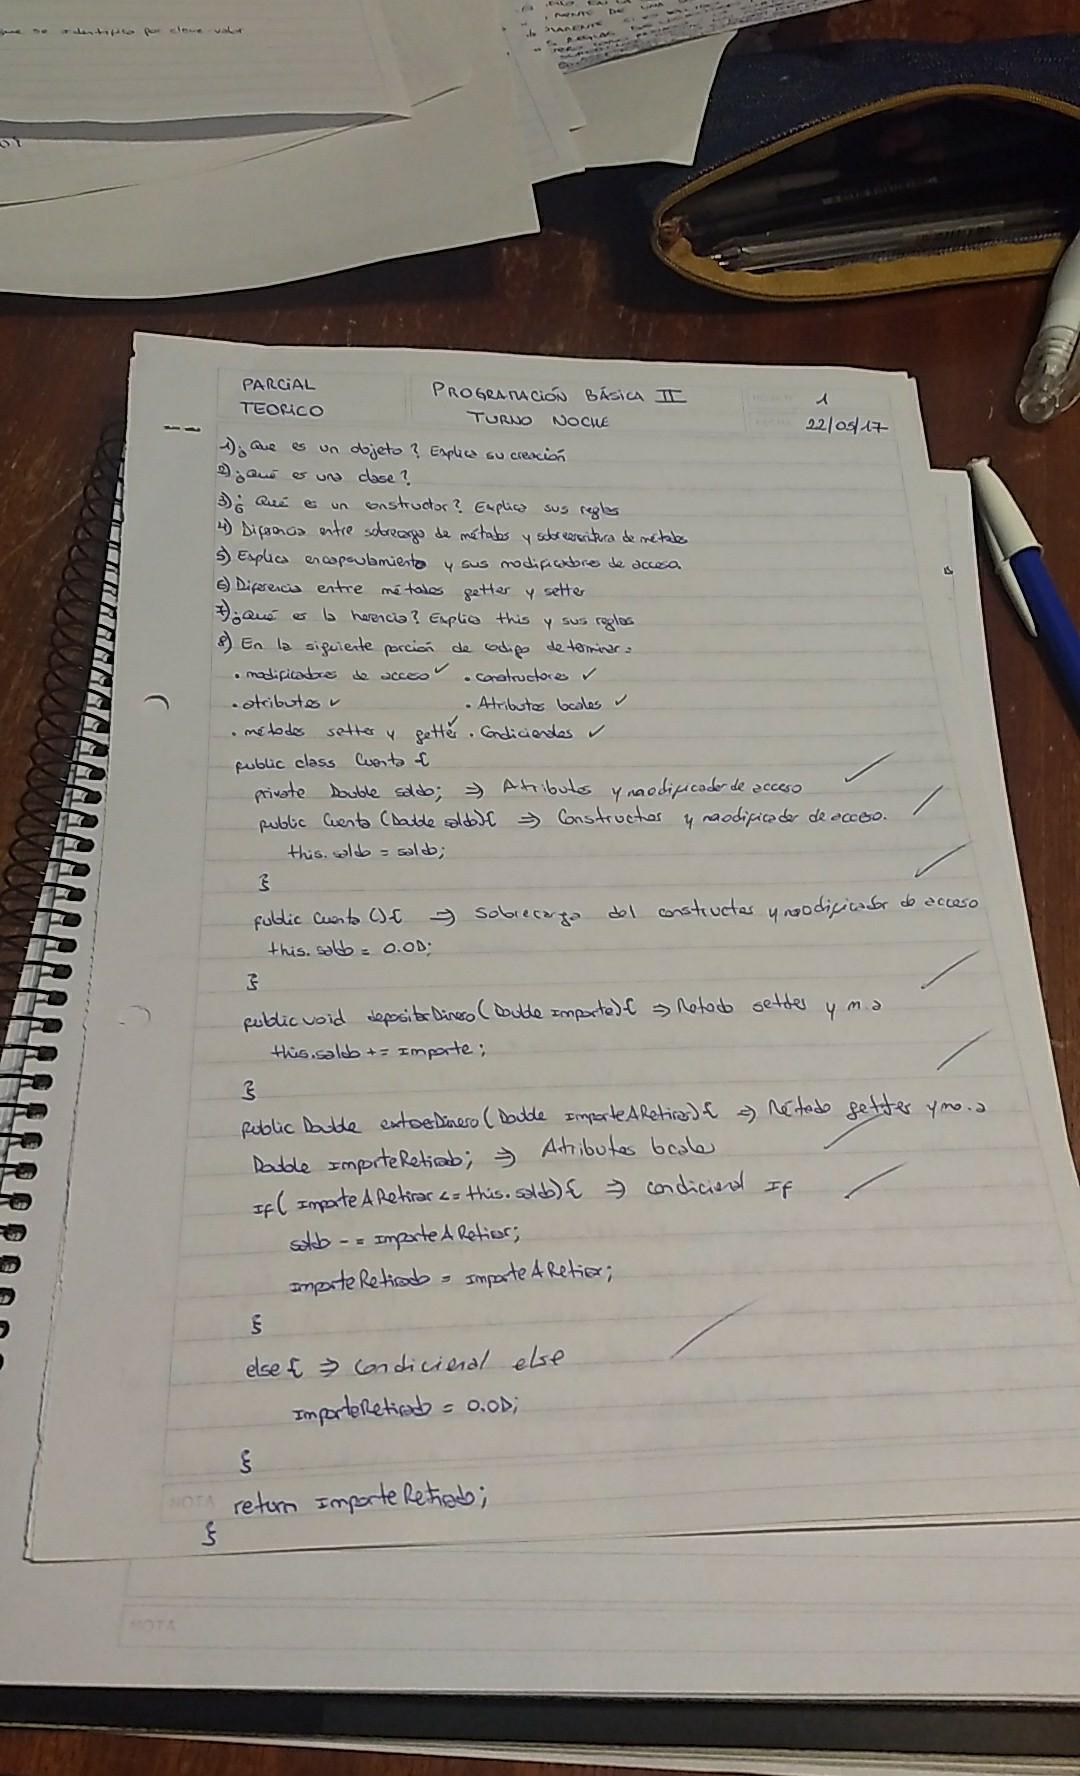 que se identifica por clave-valor
PARCIAL
TEORICO
PROGRAMACIÓN BÁSICA II
TURNO NOCHE
1
22/05/17
1) ¿Que es un objeto? Explica su creación
2) ¿Qué es una clase?
3) ¿Qué es un constructor? Explica sus reglas
4) Diferencia entre sobrecarga de métodos y sobreescritura de métodos
5) Explica encapsulamiento y sus modificadores de acceso.
6) Diferencia entre métodos getter y setter
7) ¿Qué es la herencia? Explica this y sus reglas
8) En la siguiente porción de codigo determinar:
• modificadores de acceso ✓ • constructores ✓
• atributos ✓ • Atributos locales ✓
• métodos setter y getter ✓ • Condicionales ✓
public class Cuenta {
private Double saldo; ⇒ Atributos y modificador de acceso
public Cuenta (Double saldo){ ⇒ Constructor y modificador de acceso.
this.saldo = saldo;
}
public Cuenta (){ ⇒ Sobrecarga del constructor y modificador de acceso
this.saldo = 0.0D;
}
public void depositarDinero (Double Importe){ ⇒ Metodo setter y m.a
this.saldo += Importe;
}
public Double extraerDinero (Double ImporteARetirar){ ⇒ Método getter y m.a
Double ImporteRetirado; ⇒ Atributos locales
If( ImporteARetirar <= this.saldo){ ⇒ condicional If
saldo -= ImporteARetirar;
ImporteRetirado = ImporteARetirar;
}
else { ⇒ Condicional else
ImporteRetirado = 0.0D;
}
return ImporteRetirado;
}
NOTA
NOTA